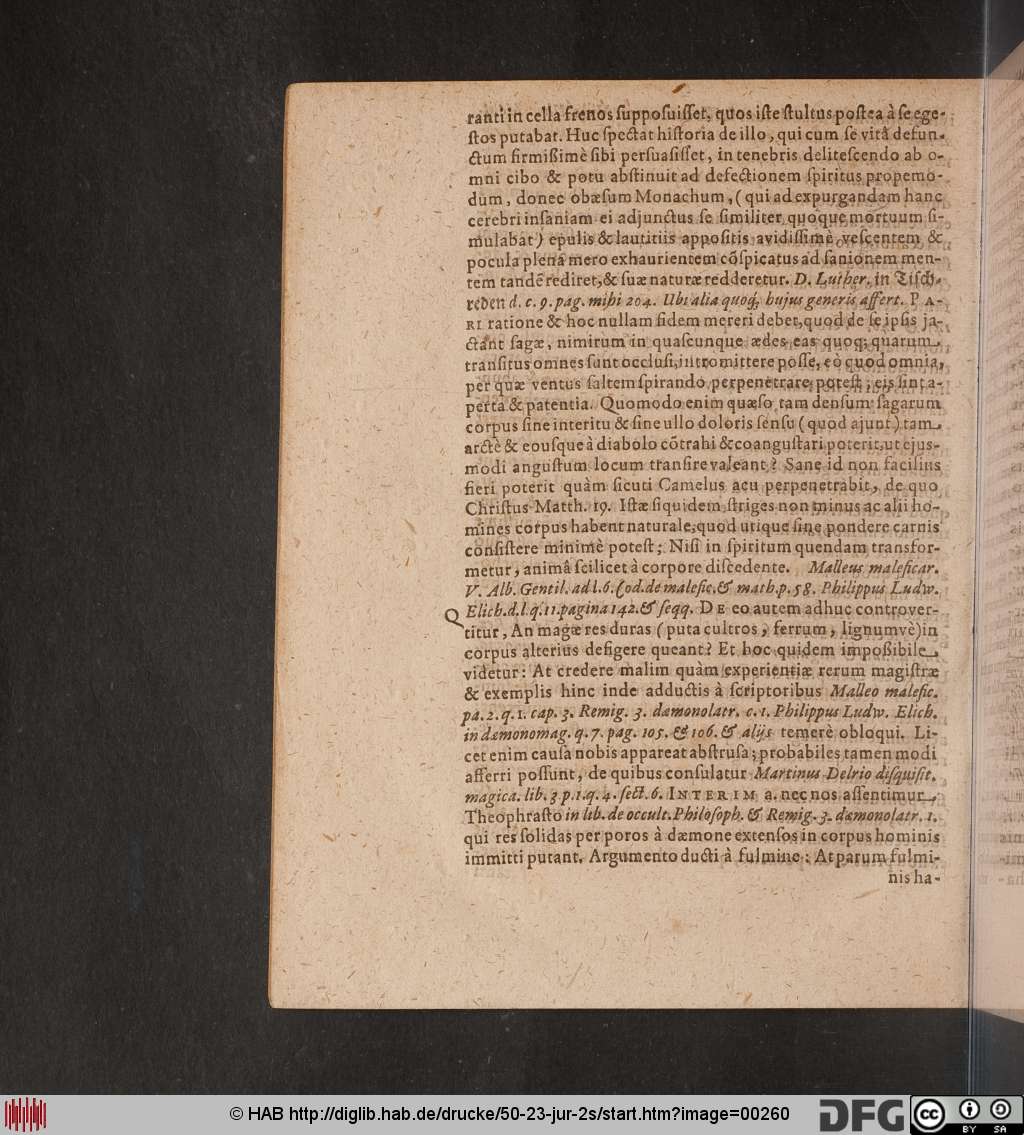 ranti in cella frenos ſuppoſuiſſet, quos iſte ſtultus poſtea à ſe ege-
ſtos putabat. Huc ſpectat hiſtoria de illo, qui cum ſe vitâ defun-
ctum firmißimè ſibi perſuaſiſſet, in tenebris deliteſcendo ab o-
mni cibo & potu abſtinuit ad defectionem ſpiritus propemo-
dum, donec obæſum Monachum, (qui ad expurgandam hanc
cerebri inſaniam ei adjunctus ſe ſimiliter quoque mortuum ſi-
mulabat) epulis & lautitiis appoſitis avidiſſimè veſcentem &
pocula plena mero exhaurientem cõſpicatus ad ſanionem men-
tem tandẽ rediret, & ſuæ naturæ redderetur. D. Luther. in Tiſch-
reden d. c. 9. pag. mihi 204. Ubi alia quoq; hujus generis affert. PA-
RI ratione & hoc nullam fidem mereri debet, quod de ſe ipſis ja-
ctant ſagæ, nimirum in quaſcunque ædes, eas quoq; quarum
tranſitus omnes ſunt occluſi, intromittere poſſe, eò quod omnia,
per quæ ventus ſaltem ſpirando perpenetrare poteſt, eis ſint a-
perta & patentia. Quomodo enim quæſo tam denſum ſagarum
corpus ſine interitu & ſine ullo doloris ſenſu (quod ajunt) tam
arctè & eouſque à diabolo cõtrahi & coanguſtari poterit, ut ejus-
modi anguſtum locum tranſire valeant? Sane id non facilius
fieri poterit quàm ſicuti Camelus acu perpenetrabit, de quo
Chriſtus Matth. 19. Iſtæ ſiquidem ſtriges non minus ac alii ho-
mines corpus habent naturale, quod utique ſine pondere carnis
conſiſtere minimè poteſt; Niſi in ſpiritum quendam transfor-
metur, animâ ſcilicet à corpore diſcedente. Malleus maleficar.
V. Alb. Gentil. ad l. 6. Cod. de malefic. & math. p. 58. Philippus Ludw.
Elich. d. l. q. 11. pagina 142. & ſeqq. DE eo autem adhuc controver-
Q
titur, An magæ res duras (puta cultros, ferrum, lignumvè) in
corpus alterius defigere queant? Et hoc quidem impoßibile
videtur: At credere malim quàm experientiæ rerum magiſtræ
& exemplis hinc inde adductis à ſcriptoribus Malleo malefic.
pa. 2. q. 1. cap. 3. Remig. 3. dæmonolatr. c. 1. Philippus Ludw. Elich.
in dæmonomag. q. 7. pag. 105. & 106. & alijs temerè obloqui. Li-
cet enim cauſa nobis appareat abſtruſa; probabiles tamen modi
afferri poſſunt, de quibus conſulatur Martinus Delrio diſquiſit.
magica. lib. 3 p. 1. q. 4. ſect. 6. INTERIM a. nec nos aſſentimur
Theophraſto in lib. de occult. Philoſoph. & Remig. 3. dæmonolatr. 1.
qui res ſolidas per poros à dæmone extenſos in corpus hominis
immitti putant. Argumento ducti à fulmine: At parum fulmi-
nis ha-
© HAB http://diglib.hab.de/drucke/50-23-jur-2s/start.htm?image=00260
DFG
cc BY SA